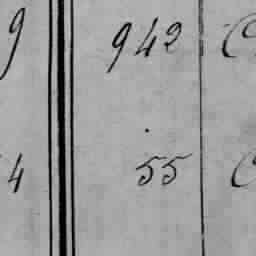 9 942 C
4 55 C